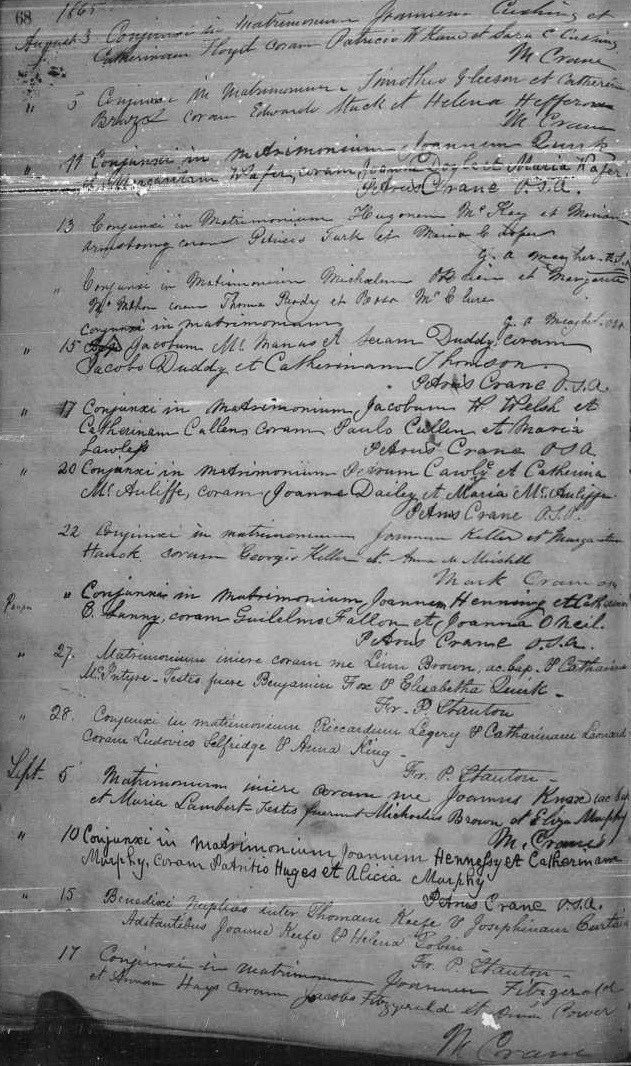 68 1865
August 3 Conjunxi in Matrimonium Joannem Cushing et
Catherinam Floyd coram Patricio W Kane et Sara C Cushing
M Crane
" 5 Conjunxi in Matrimonium Timotheo Gleeson et Catherin
coram Edwardo Stack et Helena Heffernan
M Crane
" 11 Conjunxi in matrimonium Joannem Quirk
et Margaritam Wafer, coram Joanne et Maria Wafer
Petrus Crane O.S.A.
13 Conjunxi in Matrimonium Hugonem McKay et Mariam
Armstrong coram Turk et Maria C
G. A. Meagher O.S.A.
" Conjunxi in Matrimonium Michaelem et Margarita
McMahon coram Thoma Purdy et Rosa McClure
G. A Meagher. OSA.
conjunxi in matrimonium
" 15 Jacobum McManus et Saram Duddy, coram
Jacobo Duddy et Catherinam Thomson
Petrus Crane O.S.A.
" 17 Conjunxi in matrimonium Jacobum W. Welsh et
Catherinam Cullen, coram Paulo Cullen et Maria
Lawless
Petrus Crane OSA
" 20 Conjunxi in matrimonium Petrum Cawley et Catherina
McAuliffe, coram Joanne Dailey et Maria McAuliffe
Petrus Crane O.S.A.
22 Conjunxi in matrimonium Joannem Keller et Margaritam
Hauck coram Georgio Keller et Anna M Mitchell
Mark Crane OSA
" Conjunxi in matrimonium, Joannem Henning et Catherinam
C. Lunny, coram Guilelmo Fallon et Joanna ONeil.
Petrus Crane O.S.A.
" 27. Matrimonium iniere coram me Brown, ac. bap. & Catharina
McIntyre - Testes fuere Benjamin Fox & Elisabetha Quirk -
Fr. P. Stanton
" 28. Conjunxi in matrimonium Riccardum Legery & Catharinam Leonard
coram Ludovico Selfridge & Anna King -
Fr. P. Stanton -
Sept. 5 Matrimonium iniere coram me Joannes Knox
et Maria Lambert - Testes fuerunt Michaelus Brown et Eliza Murphy
M. Crane
" 10 Conjunxi in matrimonium Joannem Hennessy et Catherinam
Murphy, coram Patritio Hages et Alicia Murphy
Petrus Crane O.S.A.
" 15 Benedixi nuptias inter Thomam Keefe & Josephinam Curtain
Adstantibus Joanne Keefe & Helena Tobin -
Fr. P. Stanton -
17 Conjunxi in Matrimonium Joannem Fitzgerald
et Annam Hays coram Jacobo Fitzgerald et Power
M Crane